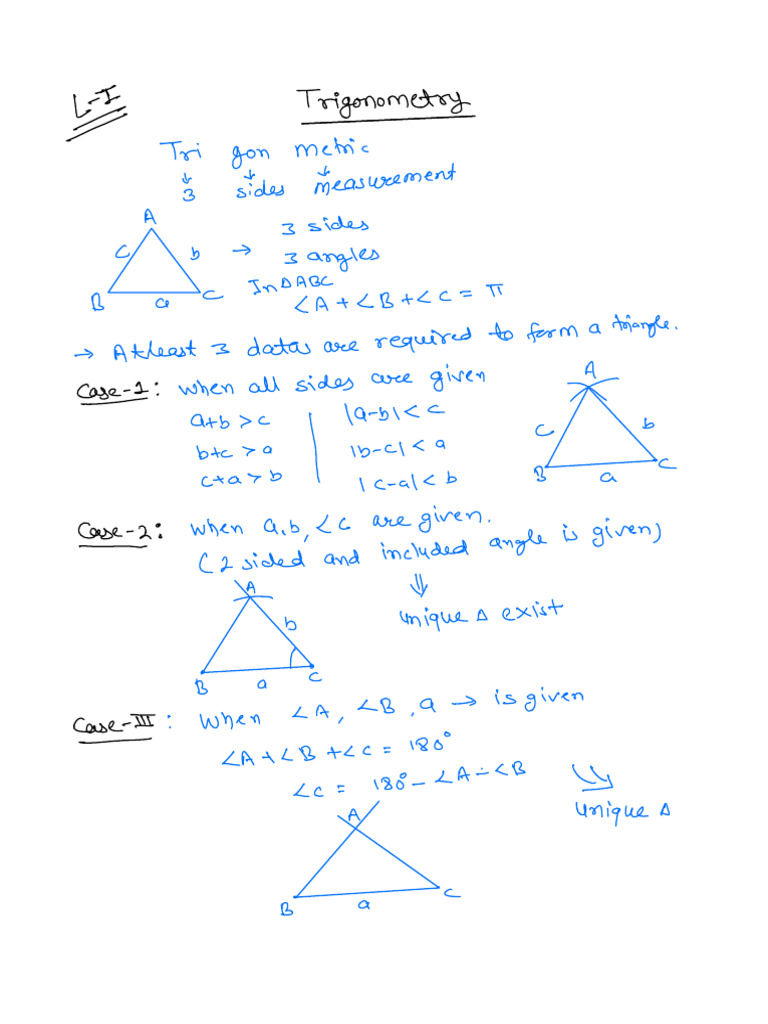 L-I
Trigonometry
Tri gon metric
↓ ↓ ↓
3 sides measurement
A
c b → 3 sides
3 angles
B a C
In △ABC
∠A + ∠B + ∠C = π
→ Atleast 3 datas are required to form a triangle.
Case-1: when all sides are given
a+b > c |a-b| < c
b+c > a |b-c| < a
c+a > b |c-a| < b
A
c b
B a C
Case-2: when a, b, ∠C are given.
(2 sided and included angle is given)
⇓
unique △ exist
A
b
B a C
Case-III: When ∠A, ∠B, a → is given
∠A + ∠B + ∠C = 180°
∠C = 180° - ∠A - ∠B
unique △
A
B a C